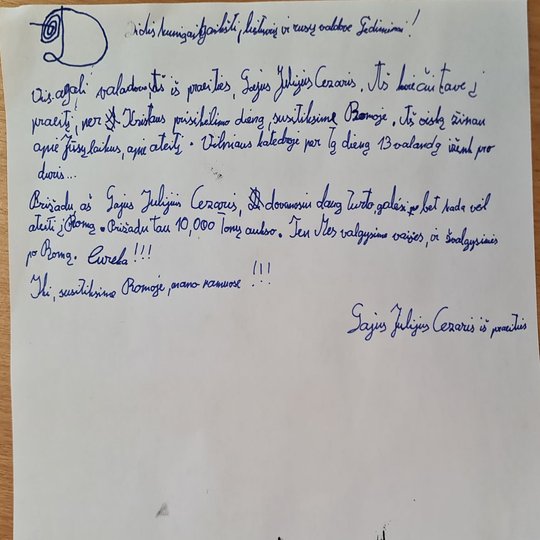 Didis kunigaikštjaikšti, lietuvių ir rusų valdove Gediminai!
Vis.agali valadove, aš iš praeities, Gajus Julijus Cezaris. Aš kviečiu tave į
praeitį, per Kristaus prisikėlimo dieną, susitiksime Romoje. Aš viską žinau
apie Jūsų laikus, apie ateitį. Vilniaus katedroje per tą dieną 13 valandą išeik pro
duris...
Prižadu aš Gajus Julijus Cezaris, dovanosiu daug turto, galėsi bet kada vėl
ateiti į Romą. Prižadu tau 10,000 Tonų aukso. Ten Mes valgysime vaišes, ir švalgysimės
po Romą. Eureka!!!
Iki, susitiksime Romoje, mano namuose!!!
Gajus Julijus Cezaris iš praeities